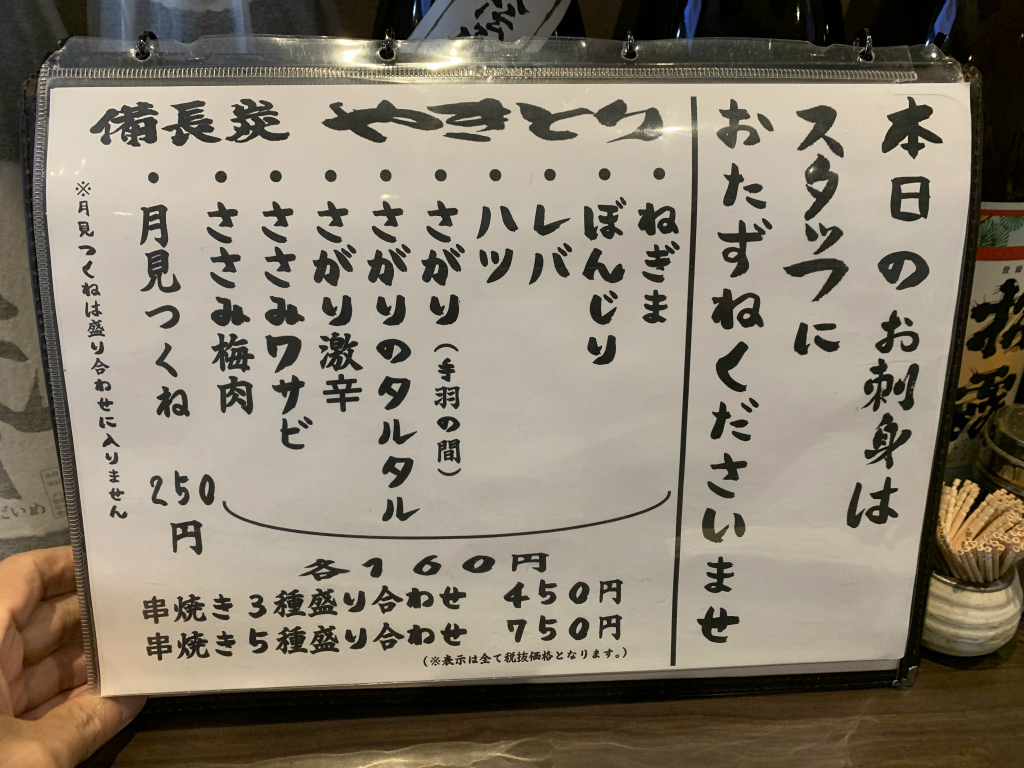 本日のお刺身は
スタッフに
おたずねくださいませ
備長炭 やきとり
・ねぎま
・ぼんじり
・レバ
・ハツ
・さがり(手羽の間)
・さがりのタルタル
・さがり激辛
・ささみワサビ
・ささみ梅肉
・月見つくね 250円
※月見つくねは盛り合わせに入りません
各160円
串焼き3種盛り合わせ 450円
串焼き5種盛り合わせ 750円
(※表示は全て税抜価格となります。)